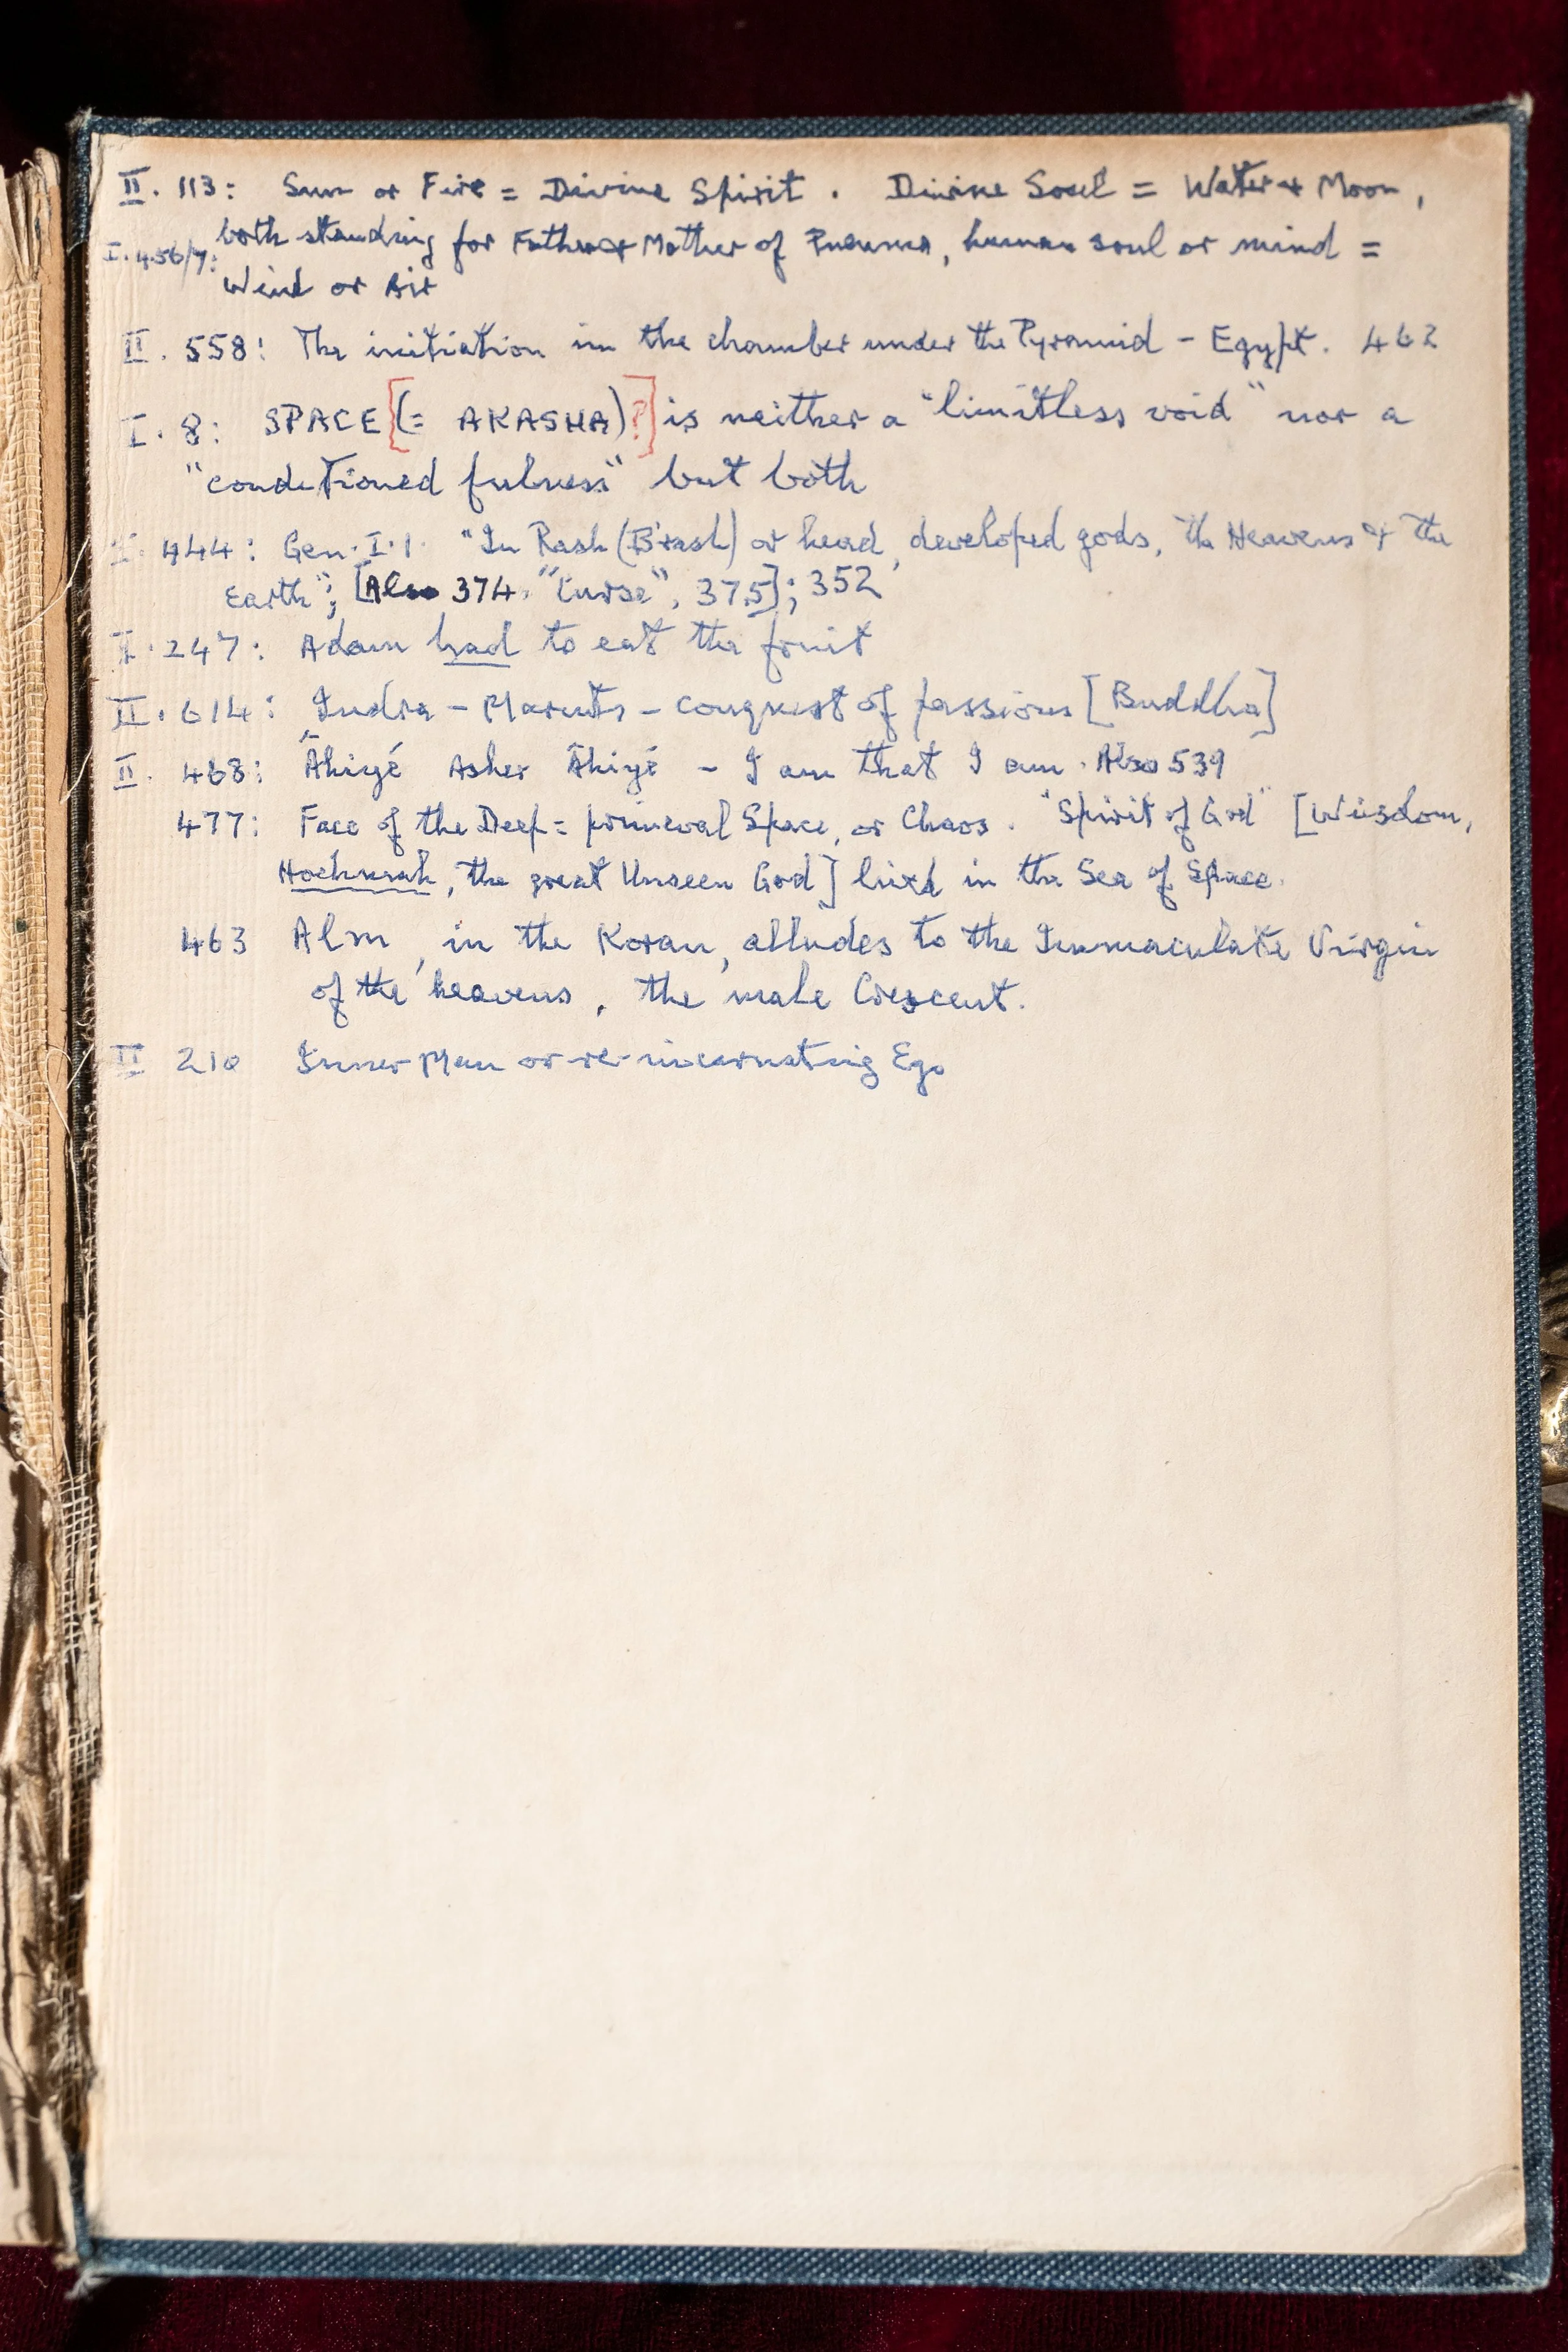 II. 113: Sun or Fire = Divine Spirit. Divine Soul = Water & Moon,
I. 456/7: both standing for Father & Mother of Pneuma, human soul or mind =
Wind or Air
II. 558: The initiation in the chamber under the Pyramid - Egypt. 462
I. 8: SPACE [(= AKASHA)?] is neither a "limitless void" nor a
"conditioned fulness" but both
I. 444: Gen. I. 1. "In Rash (B'rash) or head, developed gods, the Heavens & the
Earth"; [Also 374. "Curse", 375]; 352
I. 247: Adam had to eat the fruit
II. 614: Indra - Maruts - conquest of passions [Buddha]
II. 468: Âhiyé Asher Âhiyé - I am that I am. Also 539
477: Face of the Deep = primeval Space, or Chaos. "Spirit of God" [Wisdom,
Hochmah, the great Unseen God] lived in the Sea of Space.
463 Alm, in the Koran, alludes to the Immaculate Virgin
of the heavens, the male Crescent.
II 210 Inner Man or re-incarnating Ego